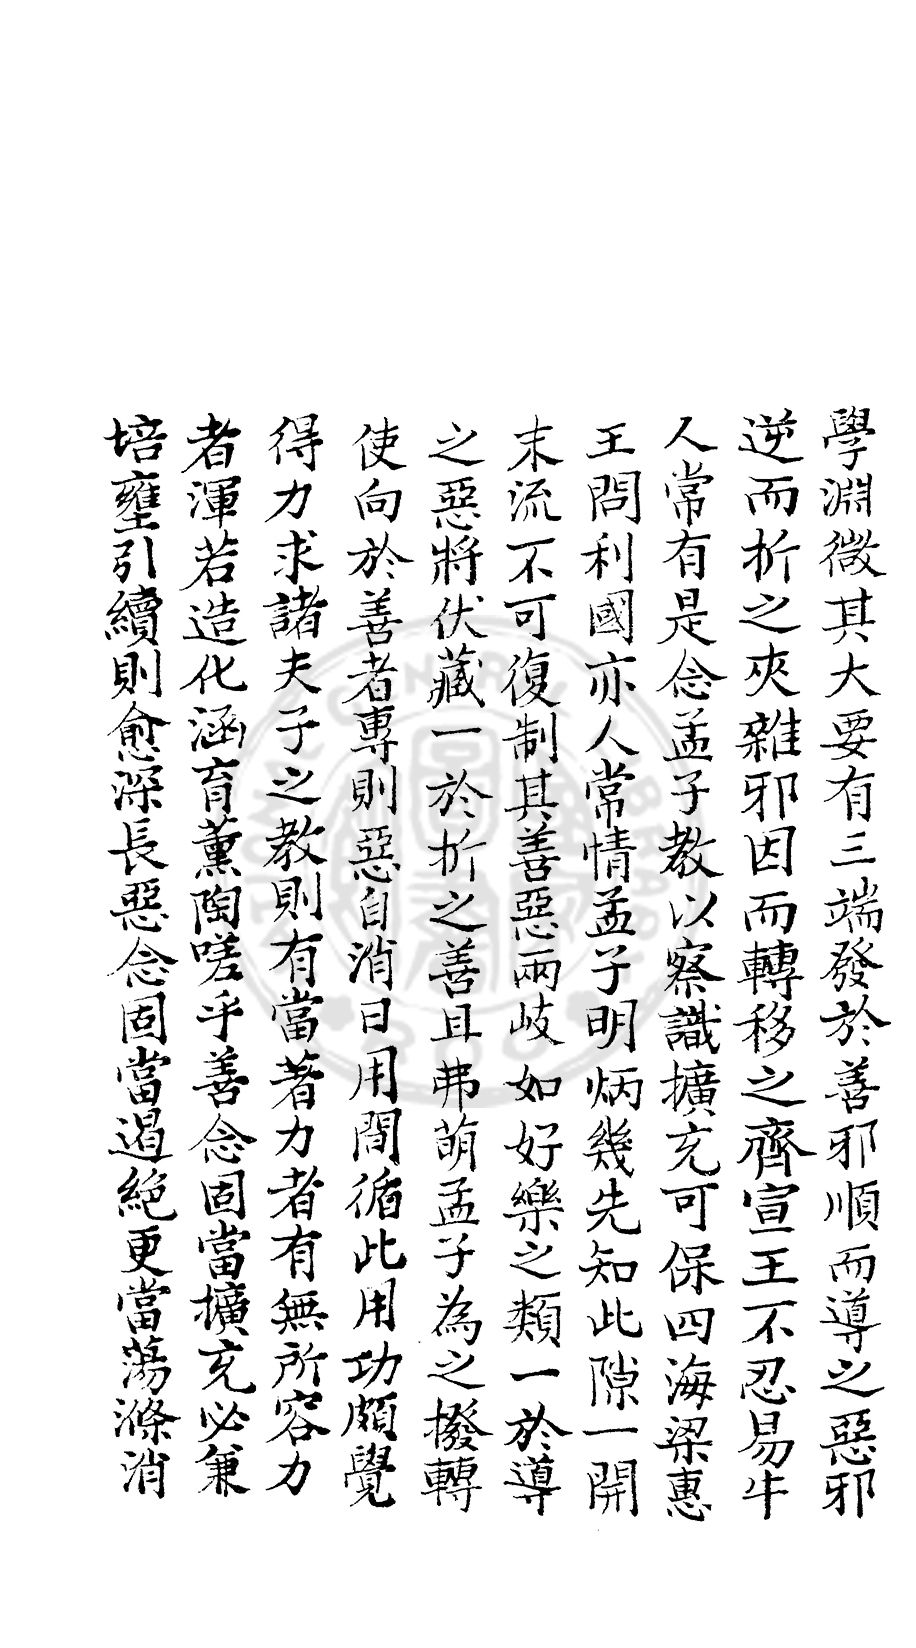 學淵微其大要有三端發於善邪順而導之惡邪
逆而折之夾雜邪因而轉移之齊宣王不忍易牛
人常有是念孟子教以察識擴充可保四海梁惠
王問利國亦人常情孟子明炳幾先知此隙一開
末流不可復制其善惡兩岐如好樂之類一於導
之惡將伏藏一於折之善且弗萌孟子為之撥轉
使向於善者專則惡自消日用間循此用功頗覺
得力求諸夫子之教則有當著力者有無所容力
者渾若造化涵育薰陶嗟乎善念固當擴充必兼
培壅引續則愈深長惡念固當遏絕更當蕩滌消